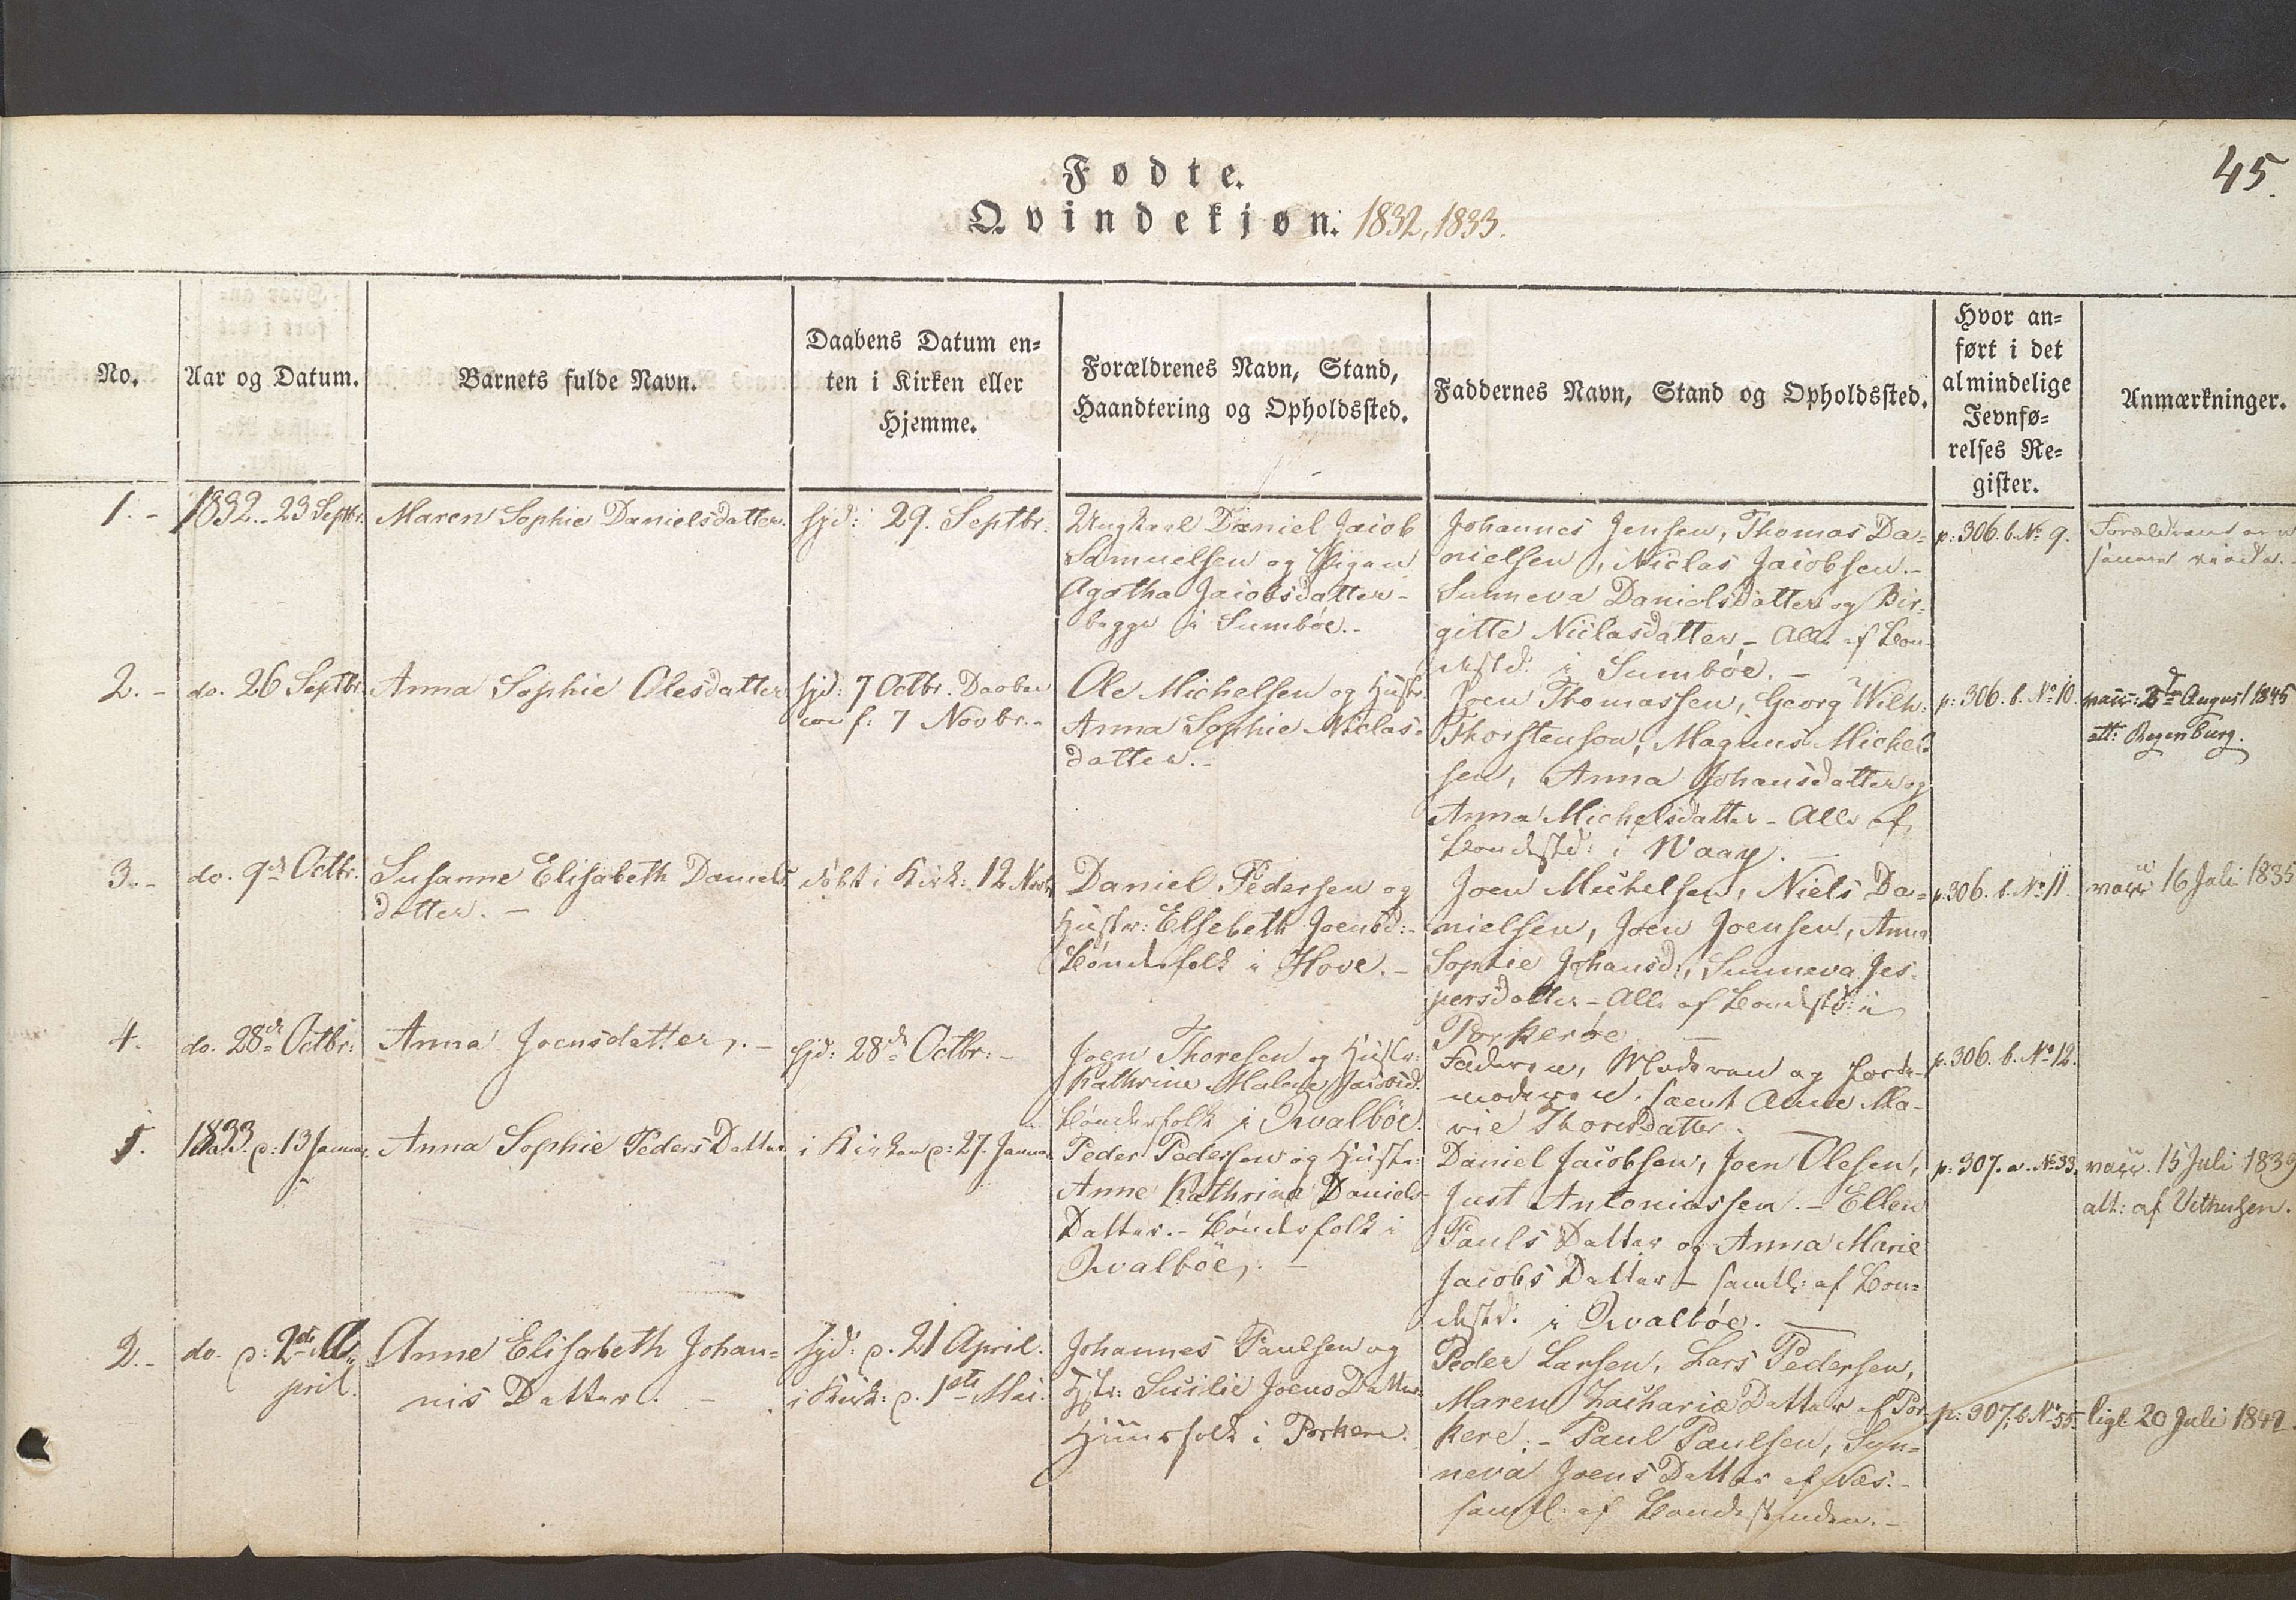 45.
Fødte.
Qvindekjøn. 1832, 1833.
No.
Aar og Datum.
Barnets fulde Navn.
Daabens Datum en=
ten i Kirken eller
Hjemme.
Forældrenes Navn, Stand,
Haandtering og Opholdssted.
Faddernes Navn, Stand og Opholdssted.
Hvor an=
ført i det
almindelige
Jevnfø=
relses Re=
gister.
Anmærkninger.
1. -
1832. 23 Septbr.
Maren Sophie Danielsdatter.
hjd: 29. Septbr.
Ungkarl Daniel Jacob
Samuelsen og Pigen
Agatha Jacobsdatter -
begge i Sumbøe. -
Johannes Jensen, Thomas Da=
nielsen, Niclas Jacobsen. -
Sunneva Danielsdatter og Bir=
gitte Niclasdatter, - Alle af Bon=
destd: i Sumbøe. -
p: 306. b. No 9.
Forældrene ere
2. -
do. 26 Septbr.
Anna Sophie Olesdatter
hjd: 7 Octbr. Daaben
conf: 7 Novbr. -
Ole Michelsen og Hustr.
Anna Sophie Niclas=
datter. -
Joen Thomassen, Georg Wilh:
Thorstenson, Magnus Michel=
sen, Anna Johansdatter og
Anna Michelsdatter - Alle af
Bondestd: i Waag. -
p: 306. b. No 10.
August 1845
att: Regenburg.
3. -
do. 9de Octbr.
Susanne Elisabeth Daniels
datter. -
døbt i Kirk: 12 Novbr
Daniel Pedersen og
Hustr: Elsebeth Joensd: -
Bøndefolk i Hove. -
Joen Michelsen, Niels Da=
nielsen, Joen Joensen, Anna
Sophie Johansd:, Sunneva Jes=
persdatter - Alle af Bondestd: i
Porkerøe. -
p. 306. b. No 11.
vacc 16 Juli 1835
4.
do. 28de Octbr:
Anna Joensdatter, -
hjd: 28de Octbr: -
Joen Thoresen og Hustr:
Kathrine Malene Jacobsd.
Bøndefolk i Qvalbøe.
Faderen, Moderen og Jorde=
moderen, samt Anne Ma=
rie Thoresdatter.
p. 306. b. No 12.
1.
1833. d: 13 Januar.
Anna Sophie Peders Datter.
i Kirken d: 27. Januar
Peder Pedersen og Hustr:
Anne Kathrine Daniels
Datter. - Bøndefolk i
Qvalbøe, -
Daniel Jacobsen, Joen Olesen,
Just Antoniussen. - Ellen
Pauls Datter og Anna Marie
Jacobs Datter - samtl: af Bon=
destd. i Qvalbøe. -
p: 307. a. No 33.
vacc. 15 Juli 1839
att: af Vithusen.
2. -
do. d: 2de A=
pril.
Anne Elisabeth Johan=
nis Datter. -
hjd: d. 21 April.
i Kirk: d. 1ste Mai.
Johannes Paulsen og
Hstr: Sicilie Joens Datter
Huusfolk i Porkere.
Peder Larsen, Lars Pedersen,
Maren Zachariæ Datter af Por=
kere; - Paul Paulsen, Syn=
neva Joens Datter af Næs. -
samtl: af Bondestanden. -
p: 307. b. No 55.
ligl 20 Juli 1842.